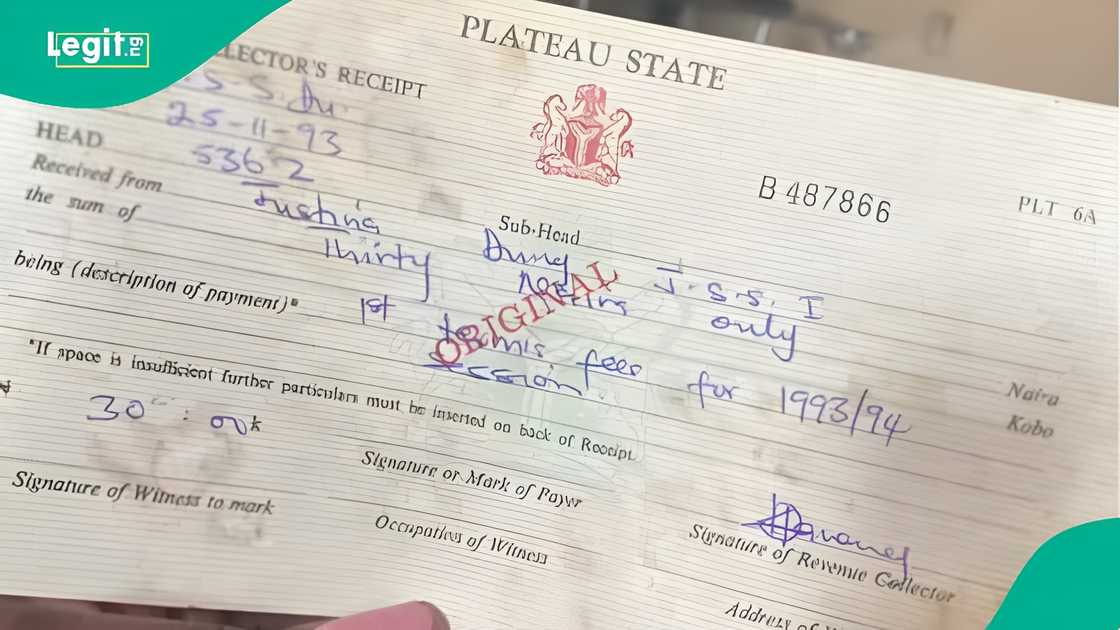 Legit.ng
PLATEAU STATE
LECTOR'S RECEIPT
25-11-93
HEAD 5362
B 487866
PLT 6A
Sub-Head
Received from Justina Dung J.S.S. I
the sum of Thirty Naira only
Naira
Kobo
being (description of payment)* 1st term's fees for 1993/94
session
ORIGINAL
*If space is insufficient further particulars must be inserted on back of Receipt.
30 : 00k
Signature or Mark of Payer
Signature of Witness to mark
Occupation of Witness
Signature of Revenue Collector
Address of